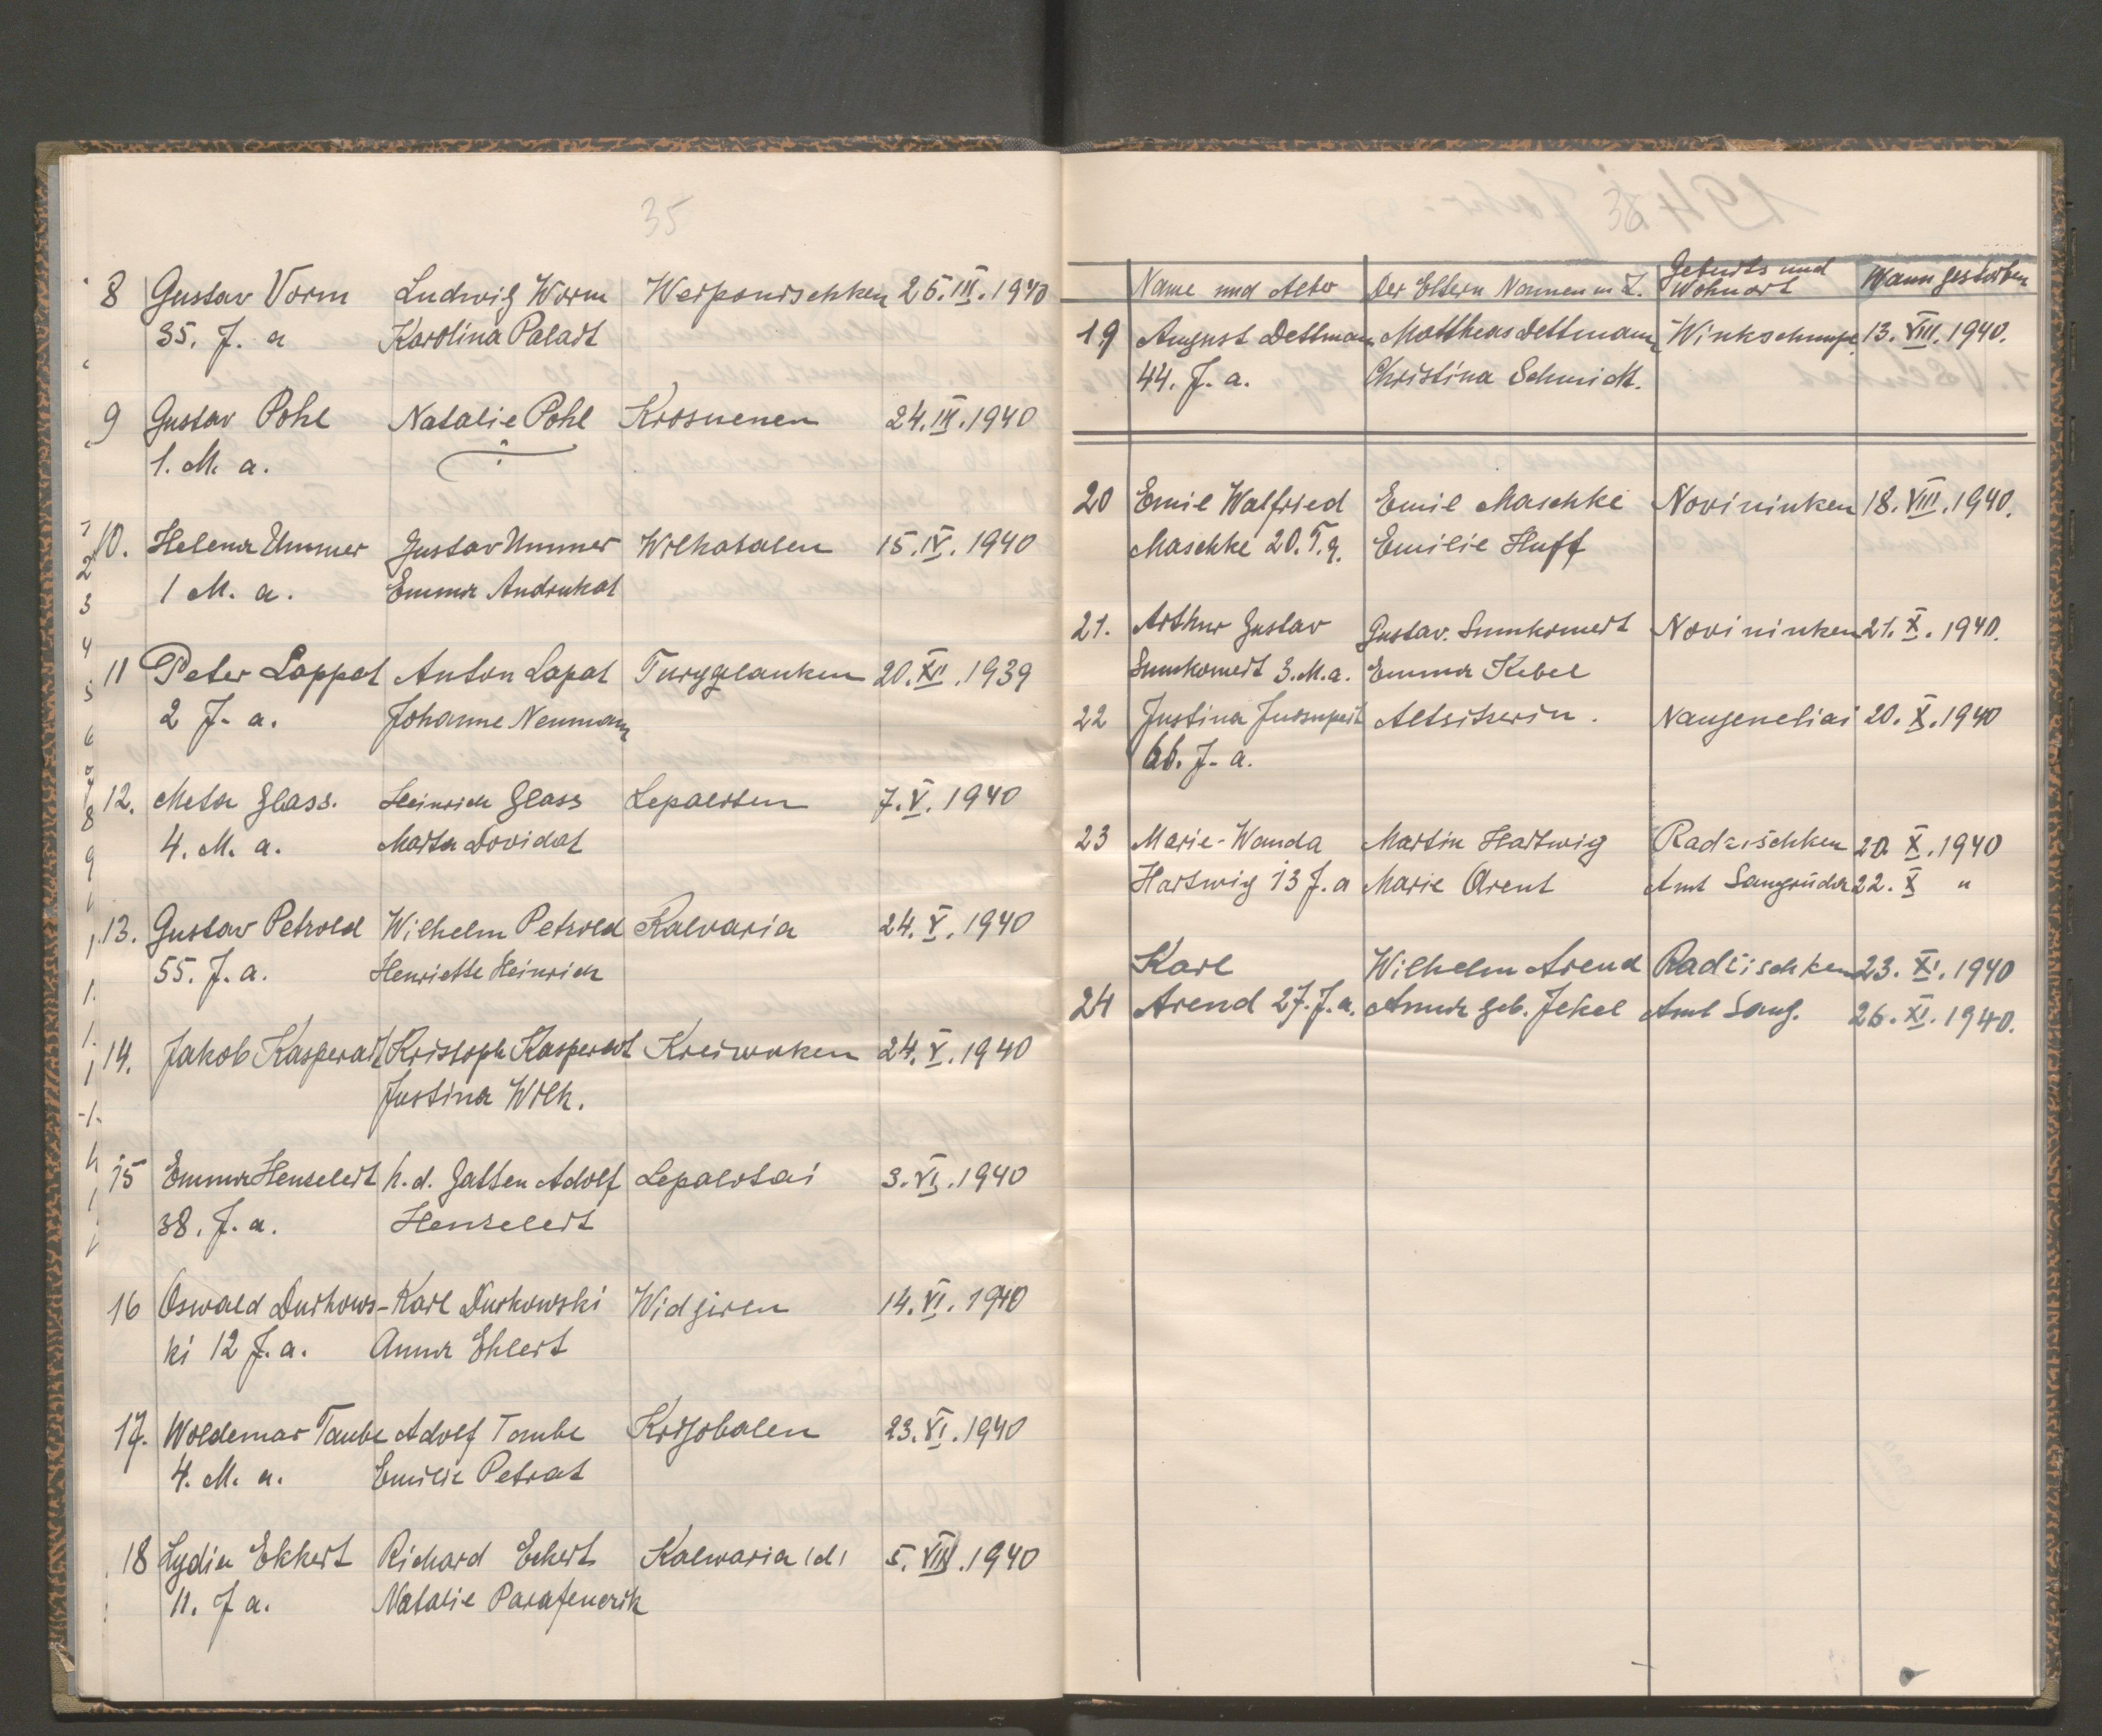 35
8 Gustav Vorm Ludwig Worm Werponrschken 26.III.1940
35. J. a Karolina Paladt
9 Gustav Pohl Natalie Pohl Krosnenen 24.III.1940
1. M. a.
10. Helena Ummer Gustav Ummer Wilkabalen 15.IV.1940
1 M. a. Emma Andrukat
11 Peter Lappat Anton Lapat Turgglauken 20.XII.1939
2 J. a. Johanne Neumann
12. Meta Glass. Heinrich Glass Lepalosten 7.V.1940
4. M. a. Marta Dovidat
13. Gustav Petrold Wilhelm Petrold Kalvaria 24.V.1940
55. J. a. Henriette Heinrich
14. Jakob Kasperait Kristoph Kasperait Kreiwuken 24.V.1940
Justina Wilk.
15 Emma Henseleit h. d. Gatten Adolf Lepalotai 3.VI.1940
38. J. a. Henseleit
16 Oswald Durkows- Karl Durkowski Widgiren 14.VI.1940
ki 12 J. a. Anna Ehlert
17. Woldemar Taube Adolf Taube 23.VI.1940
4. M. a. Emilie Petrat
18 Lydia Ekkert Richard Eckert Kalwaria (d) 5.VIII.1940
11. J a. Natalie
36
Name und Alter Der Eltern Namen u Z. Geburts und Wohnort Wann gestorben
19 August Dettmann Mattheas Dettmann Winkschnupe 13.VIII.1940.
44. J. a. Christina Schmidt.
20 Emil Walfried Emil Maschke Novininken 18.VIII.1940.
Maschke 20. T. a. Emilie Huff
21. Arthur Gustav Gustav. Sunkomert Novininken 21.X.1940.
Sunkomert 3. M. a. Emma Kebel
22 Justina Altsitzerin. Naugeneliai 20.X.1940
66. J. a.
23 Marie-Wanda Martin Hartwig Radzischken 20.X.1940
Hartwig 13 J. a Marie Arent Amt Sangruda 22.X "
Karl Wilhelm Arend Radzischken 23.XI.1940
24 Arend 27. J. a. Anna geb. Jekel Amt Sang. 26.XI.1940.